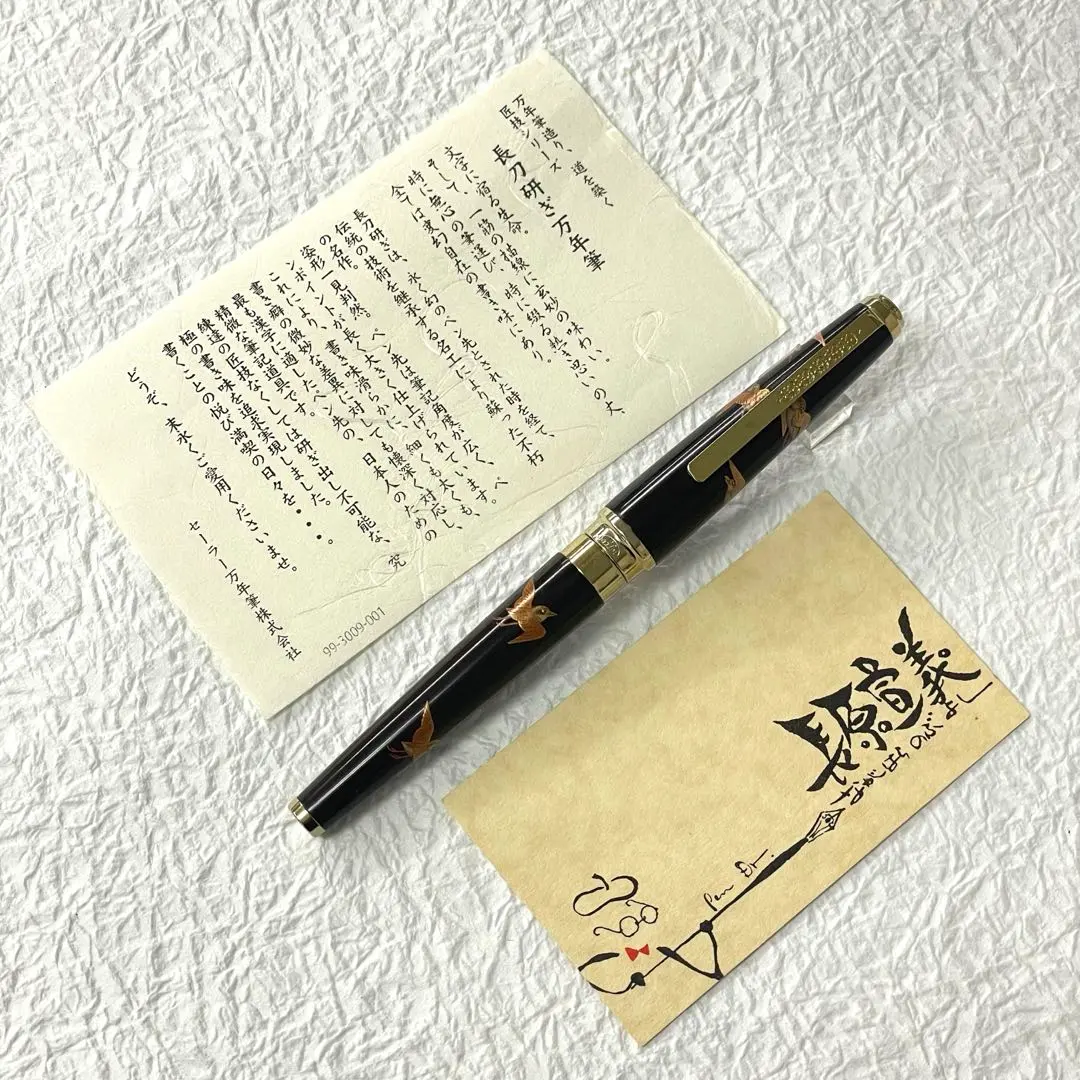 万年筆造り、道を築く
匠技シリーズ
長刀研ぎ万年筆
文字に宿る生命。一筋の描線に玄妙の味わい。
そして、時に綴る熱き思いの丈、
時に無心の筆運び、
全ては変幻自在の書き味にあり。
長刀研ぎは、永く幻のペン先とされた時を経て、
伝統の技術を継承する名工により蘇った不朽
の名作。一見判然。ペン先は
姿形が長く、大きく仕上げられています。ペ
ンポイント
これにより、筆記角度が広く、
書き癖の微妙な差異に対しても懐深く対応し、
最も漢字に適したペン先の、日本人のための
筆記道具です。
精微な匠技なくしては研ぎ出し不可能な、究
極の書き味を追求実現しました。
書くことの悦び満喫の日々を・・・。
どうぞ、末永くご愛用くださいませ。
セーラー万年筆株式会社
99-3009-001
長原宣義
ながはらのぶよし
Pen Dr.